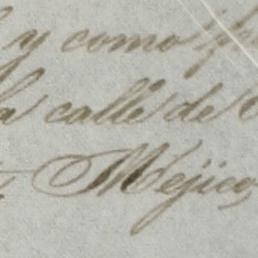 y como
la calle de
Mejico,